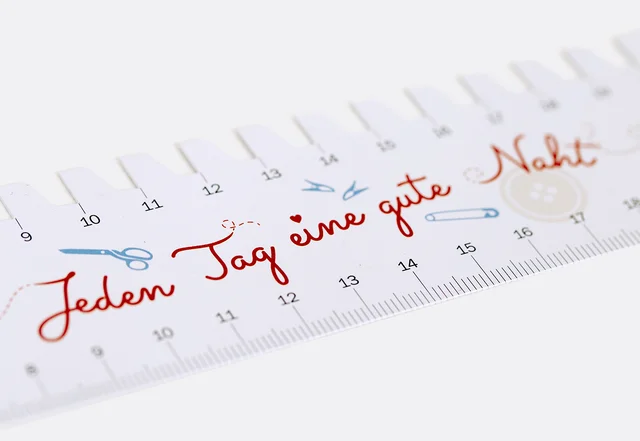 9 10 11 12 13 14 15 16 17 18 19
Jeden Tag eine gute Naht
8 9 10 11 12 13 14 15 16 17 18